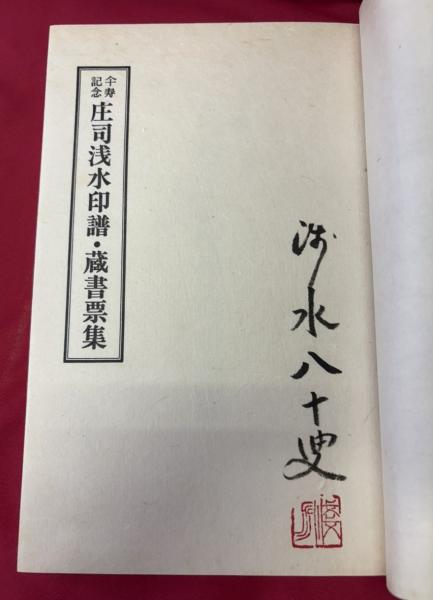 浅水八十叟
仐寿
記念
庄司浅水印譜・蔵書票集